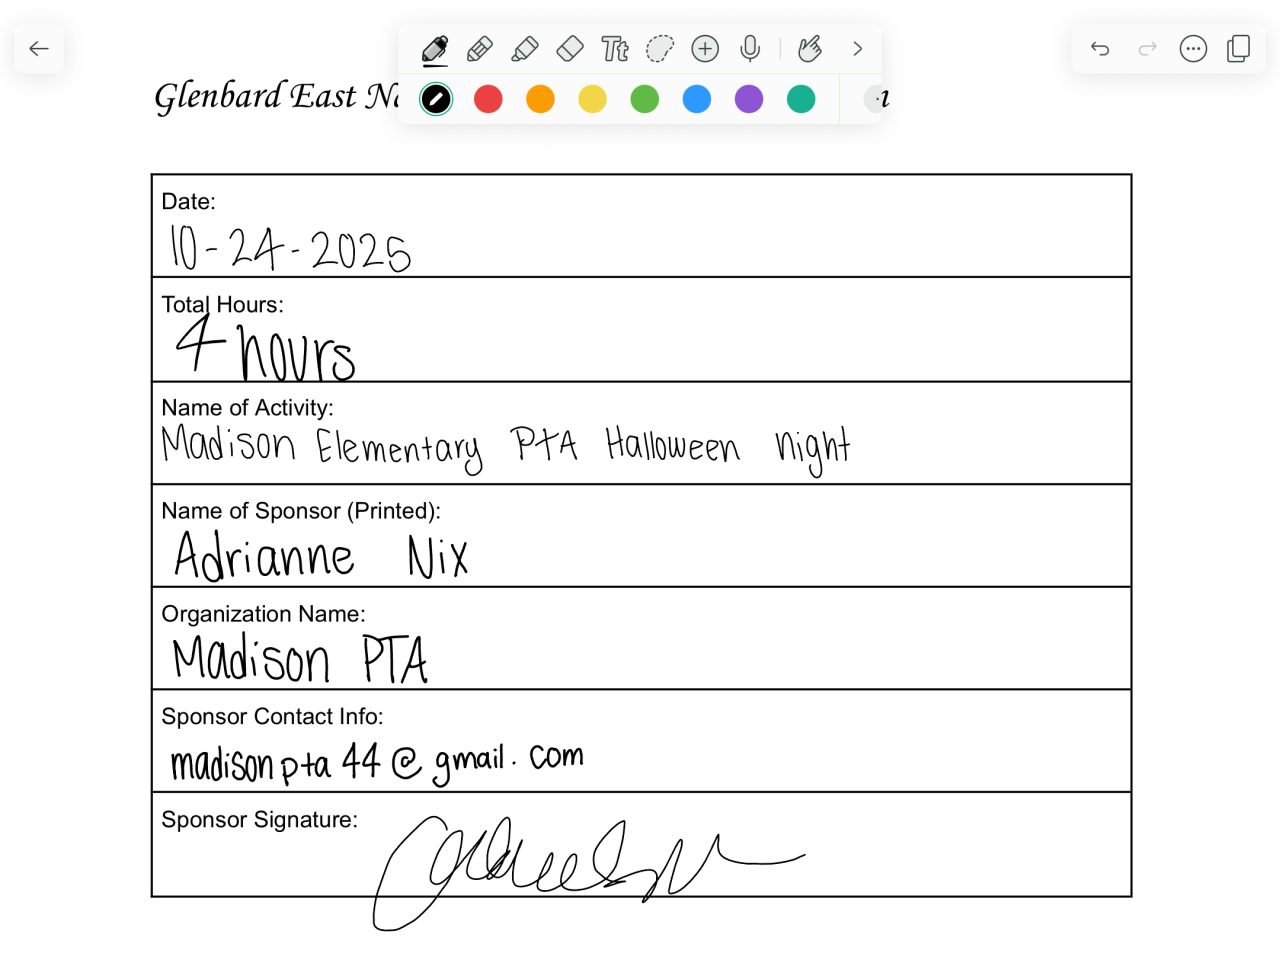 Glenbard East Na
Tt
Date:
10-24-2025
Total Hours:
4 hours
Name of Activity:
Madison Elementary PTA Halloween night
Name of Sponsor (Printed):
Adrianne Nix
Organization Name:
Madison PTA
Sponsor Contact Info:
madisonpta44@gmail.com
Sponsor Signature: